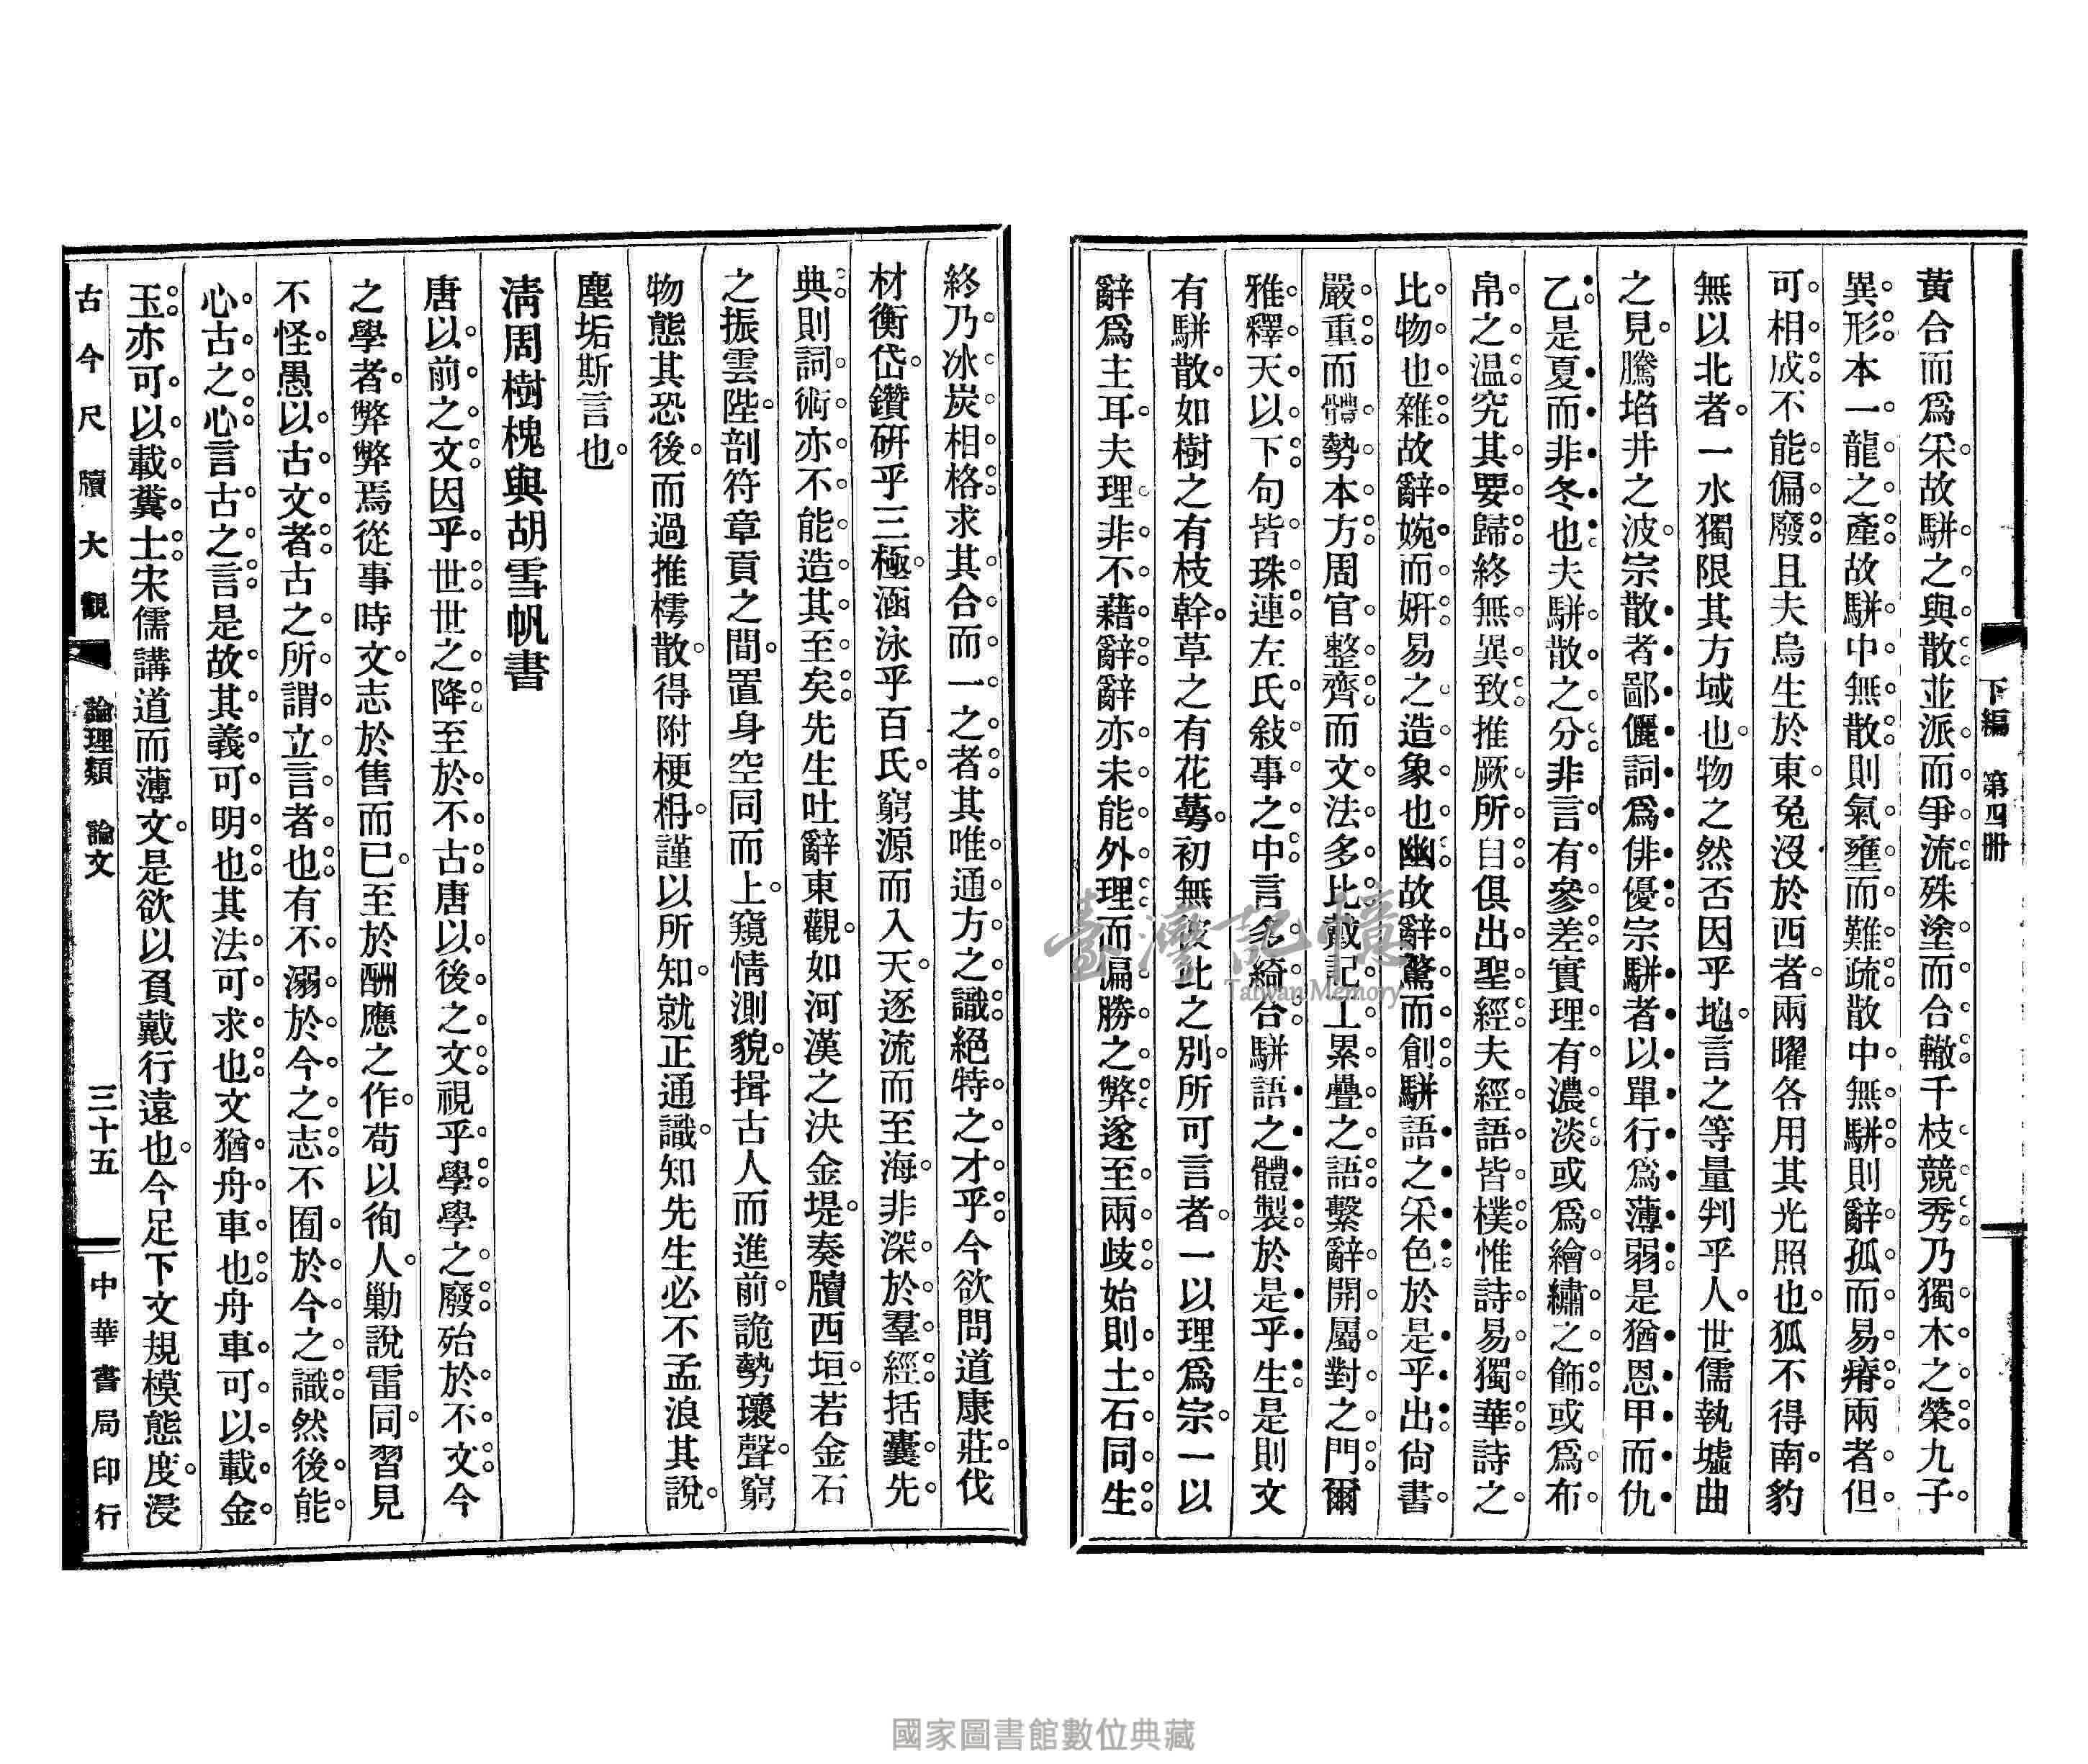 下編　第四册
黃合而爲采故駢之與散並派而爭流殊塗而合轍千枝競秀乃獨木之榮九子
異形本一龍之產故駢中無散則氣壅而難疏散中無駢則辭孤而易瘠兩者但
可相成不能偏廢且夫烏生於東兔沒於西者兩曜各用其光照也狐不得南豹
無以北者一水獨限其方域也物之然否因乎地言之等量判乎人世儒執墟曲
之見騰埳井之波宗散者鄙儷詞爲俳優宗駢者以單行爲薄弱是猶恩甲而仇
乙是夏而非冬也夫駢散之分非言有參差實理有濃淡或爲繪繡之飾或爲布
帛之温究其要歸終無異致推厥所自俱出聖經夫經語皆樸惟詩易獨華詩之
比物也雜故辭婉而姸易之造象也幽故辭驚而創駢語之采色於是乎出尙書
嚴重而體勢本方周官整齊而文法多比戴記工累疊之語繫辭開屬對之門爾
雅釋天以下句皆珠連左氏敍事之中言多綺合駢語之體製於是乎生是則文
有駢散如樹之有枝幹草之有花蕚初無彼此之別所可言者一以理爲宗一以
辭爲主耳夫理非不藉辭辭亦未能外理而偏勝之弊遂至兩歧始則土石同生
終乃冰炭相格求其合而一之者其唯通方之識絕特之才乎今欲問道康莊伐
材衡岱鑽硏乎三極涵泳乎百氏窮源而入天逐流而至海非深於羣經括囊先
典則詞術亦不能造其至矣先生吐辭東觀如河漢之決金堤奏牘西垣若金石
之振雲陛剖符章貢之間置身空同而上窺情測貌揖古人而進前詭勢瓌聲窮
物態其恐後而過推樗散得附梗枏謹以所知就正通識知先生必不孟浪其說
塵垢斯言也
淸周樹槐與胡雪帆書
唐以前之文因乎世世之降至於不古唐以後之文視乎學學之廢殆於不文今
之學者弊弊焉從事時文志於售而已至於酬應之作苟以徇人勦說雷同習見
不怪愚以古文者古之所謂立言者也有不溺於今之志不囿於今之識然後能
心古之心言古之言是故其義可明也其法可求也文猶舟車也舟車可以載金
玉亦可以載糞土宋儒講道而薄文是欲以負戴行遠也今足下文規模態度浸
古今尺牘大觀　論理類　論文　三十五　中華書局印行
臺灣記憶
Taiwan Memory
國家圖書館數位典藏